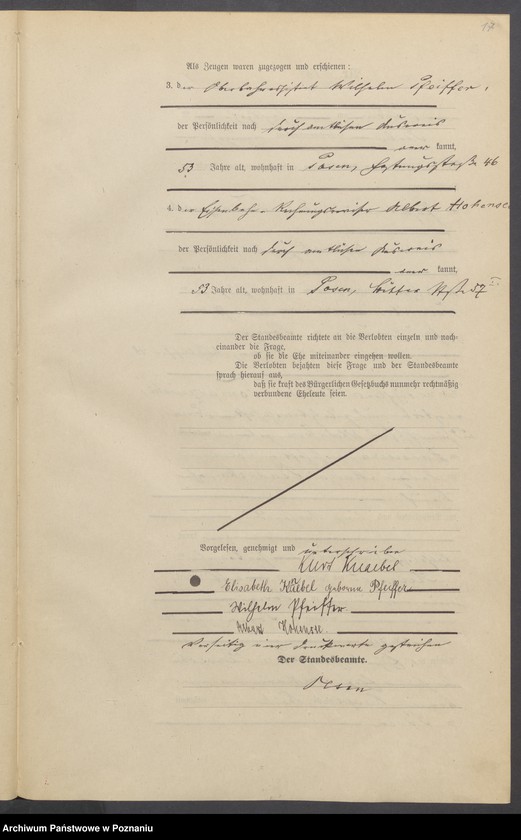 17
Als Zeugen waren zugezogen und erschienen:
3. der Oberbahnassistent Wilhelm Pfeiffer,
der Persönlichkeit nach durch amtlichen Ausweis
kannt,
53 Jahre alt, wohnhaft in Posen, 46
4. der Eisenbahn-Rechnungsrevisor Albert Hohensee
der Persönlichkeit nach durch amtlichen Ausweis
kannt,
53 Jahre alt, wohnhaft in Posen, Ritter Straße 57
Der Standesbeamte richtete an die Verlobten einzeln und nach-
einander die Frage,
ob sie die Ehe miteinander eingehen wollen.
Die Verlobten bejahten diese Frage und der Standesbeamte
sprach hierauf aus,
daß sie kraft des Bürgerlichen Gesetzbuchs nunmehr rechtmäßig
verbundene Eheleute seien.
Vorgelesen, genehmigt und unterschrieben
Elisabeth geborene Pfeiffer
Wilhelm Pfeiffer
Vorseitig vier Druckworte gestrichen
Der Standesbeamte.
Archiwum Państwowe w Poznaniu